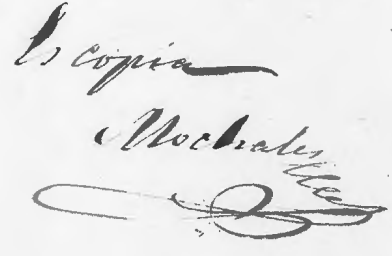 Es copia
Mochales